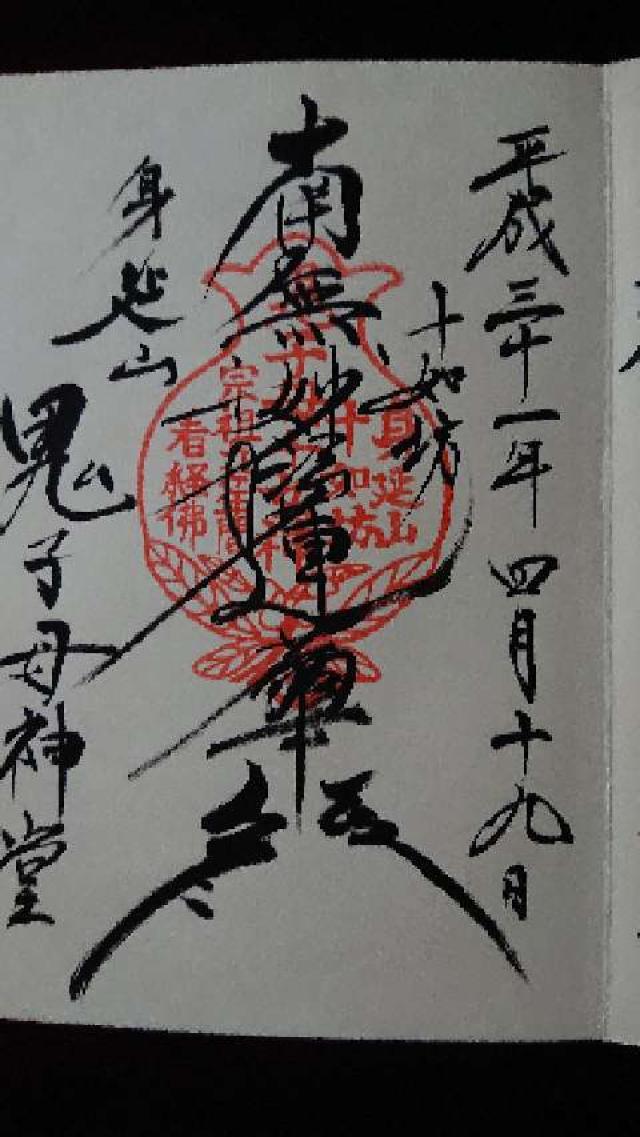 平成三十一年四月十九日
十如坊
南無妙法蓮華経
身延山
鬼子母神堂
身延山
十如坊
宗祖
看経佛